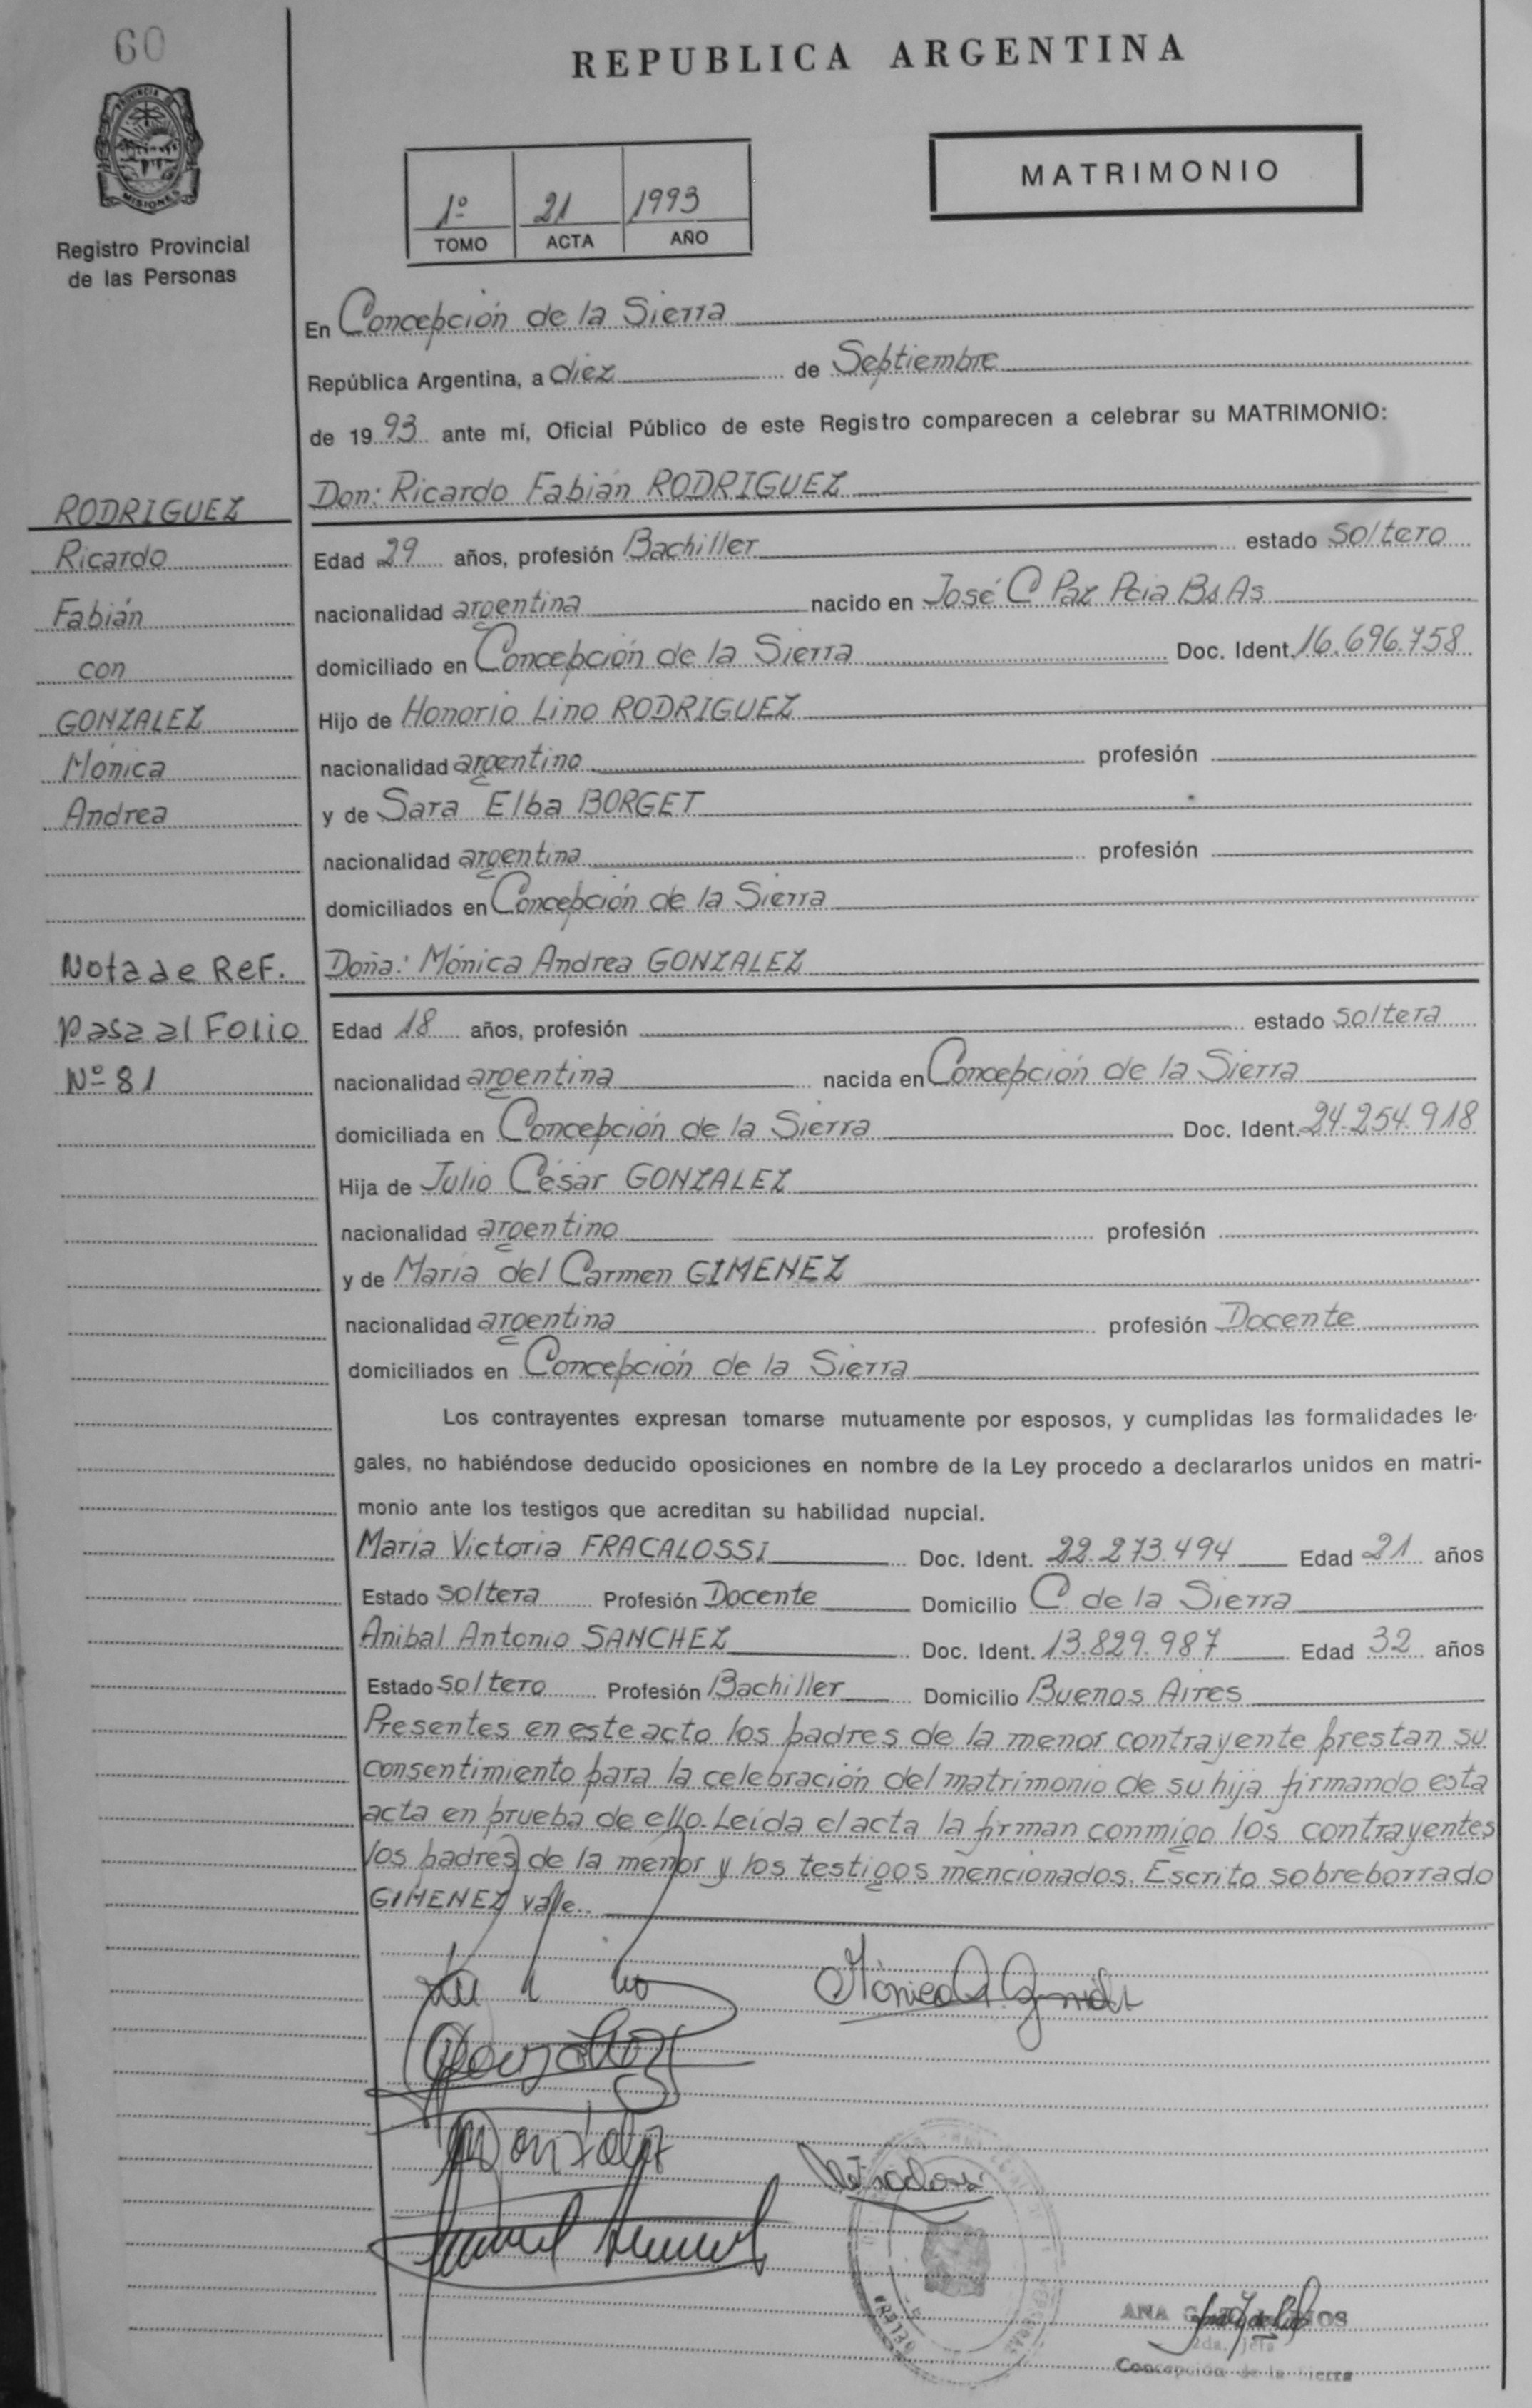 60
REPUBLICA ARGENTINA
PROVINCIA DE
MISIONES
Registro Provincial
de las Personas
1º 21 1993
TOMO ACTA AÑO
MATRIMONIO
En Concepción de la Sierra
República Argentina, a diez de Septiembre
de 1993 ante mí, Oficial Público de este Registro comparecen a celebrar su MATRIMONIO:
RODRIGUEZ
Ricardo
Fabián
con
GONZALEZ
Mónica
Andrea
Nota de Ref.
pasa al Folio
Nº 81
Don: Ricardo Fabián RODRIGUEZ
Edad 29 años, profesión Bachiller estado soltero
nacionalidad argentina nacido en José C Paz Pcia Bs As
domiciliado en Concepción de la Sierra Doc. Ident. 16.696.758
Hijo de Honorio Lino RODRIGUEZ
nacionalidad argentino profesión
y de Sara Elba BORGET
nacionalidad argentina profesión
domiciliados en Concepción de la Sierra
Doña: Mónica Andrea GONZALEZ
Edad 18 años, profesión estado soltera
nacionalidad argentina nacida en Concepción de la Sierra
domiciliada en Concepción de la Sierra Doc. Ident. 24.254.918
Hija de Julio César GONZALEZ
nacionalidad argentino profesión
y de María del Carmen GIMENEZ
nacionalidad argentina profesión Docente
domiciliados en Concepción de la Sierra
Los contrayentes expresan tomarse mutuamente por esposos, y cumplidas las formalidades le-
gales, no habiéndose deducido oposiciones en nombre de la Ley procedo a declararlos unidos en matri-
monio ante los testigos que acreditan su habilidad nupcial.
Maria Victoria FRACALOSSI Doc. Ident. 22.273.494 Edad 21 años
Estado soltera Profesión Docente Domicilio C de la Sierra
Anibal Antonio SANCHEZ Doc. Ident. 13.829.987 Edad 32 años
Estado soltero Profesión Bachiller Domicilio Buenos Aires
Presentes en este acto los padres de la menor contrayente prestan su
consentimiento para la celebración del matrimonio de su hija firmando esta
acta en prueba de ello. Leída el acta la firman conmigo los contrayentes
los padres de la menor y los testigos mencionados. Escrito sobreborrado
GIMENEZ vale.
Mónica A.
Gonzalez
ANA
2da. Jefa
Concepción de la Sierra